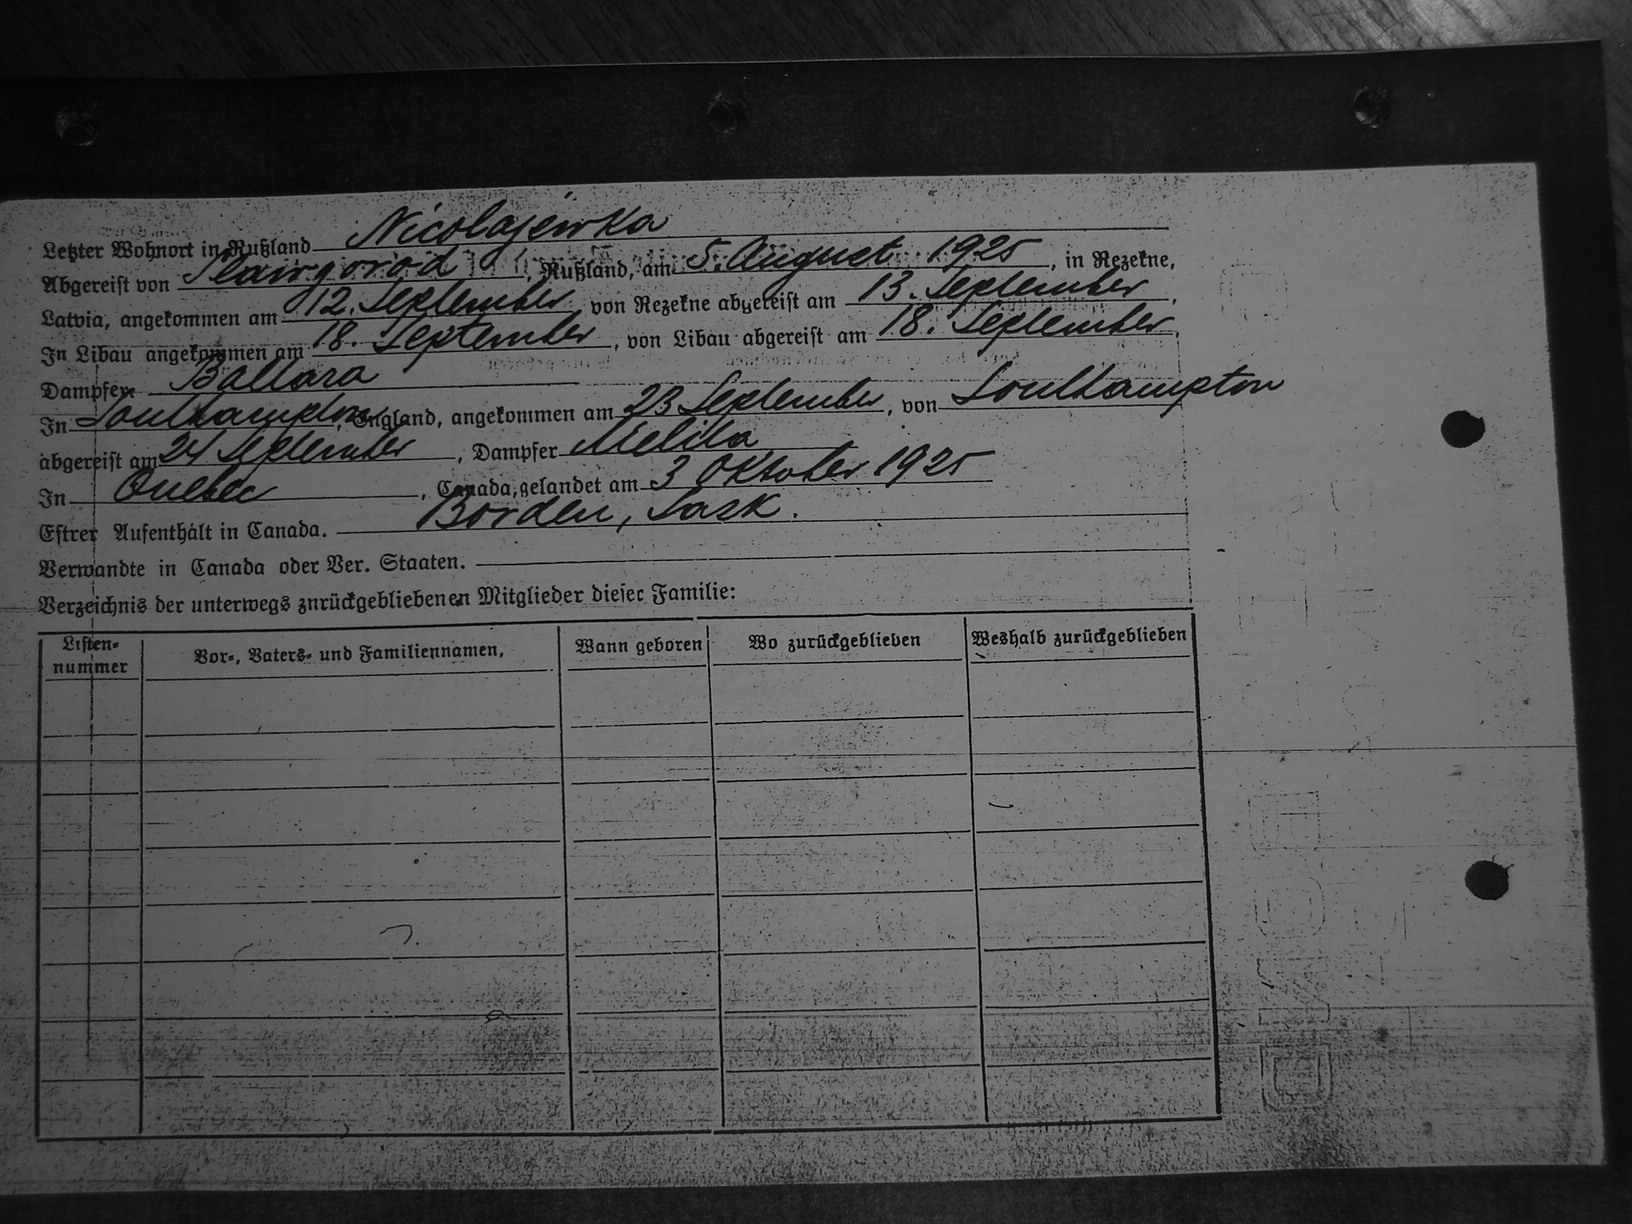 Letzter Wohnort in Rußland Nicolajewka
Abgereist von Slawgorod, Rußland, am 5. August 1925, in Rezekne,
Latvia, angekommen am 12. September von Rezekne abgereist am 13. September,
In Libau angekommen am 18. September, von Libau abgereist am 18. September,
Dampfer Baltara
In Southampton England, angekommen am 23 September, von Southampton
abgereist am 24 September, Dampfer Melita
In Quebec, Canada, gelandet am 3 Oktober 1925
Estrer Aufenthalt in Canada. Borden, Sask.
Verwandte in Canada oder Ver. Staaten.
Verzeichnis der unterwegs znrückgebliebenen Mitglieder dieser Familie:
Listen-
nummer
Vor-, Vaters- und Familiennamen,
Wann geboren
Wo zurückgeblieben
Weshalb zurückgeblieben